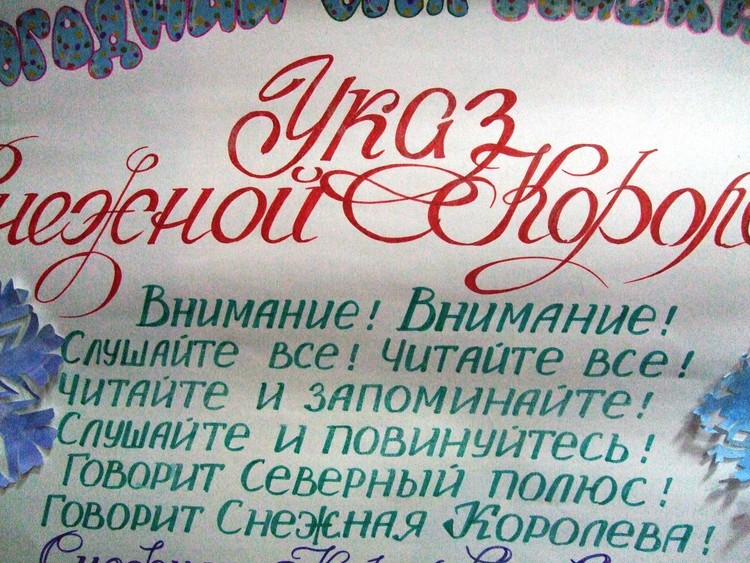 Указ
Снежной Короле
Внимание! Внимание!
Слушайте все! Читайте все!
Читайте и запоминайте!
Слушайте и повинуйтесь!
Говорит Северный полюс!
Говорит Снежная Королева!